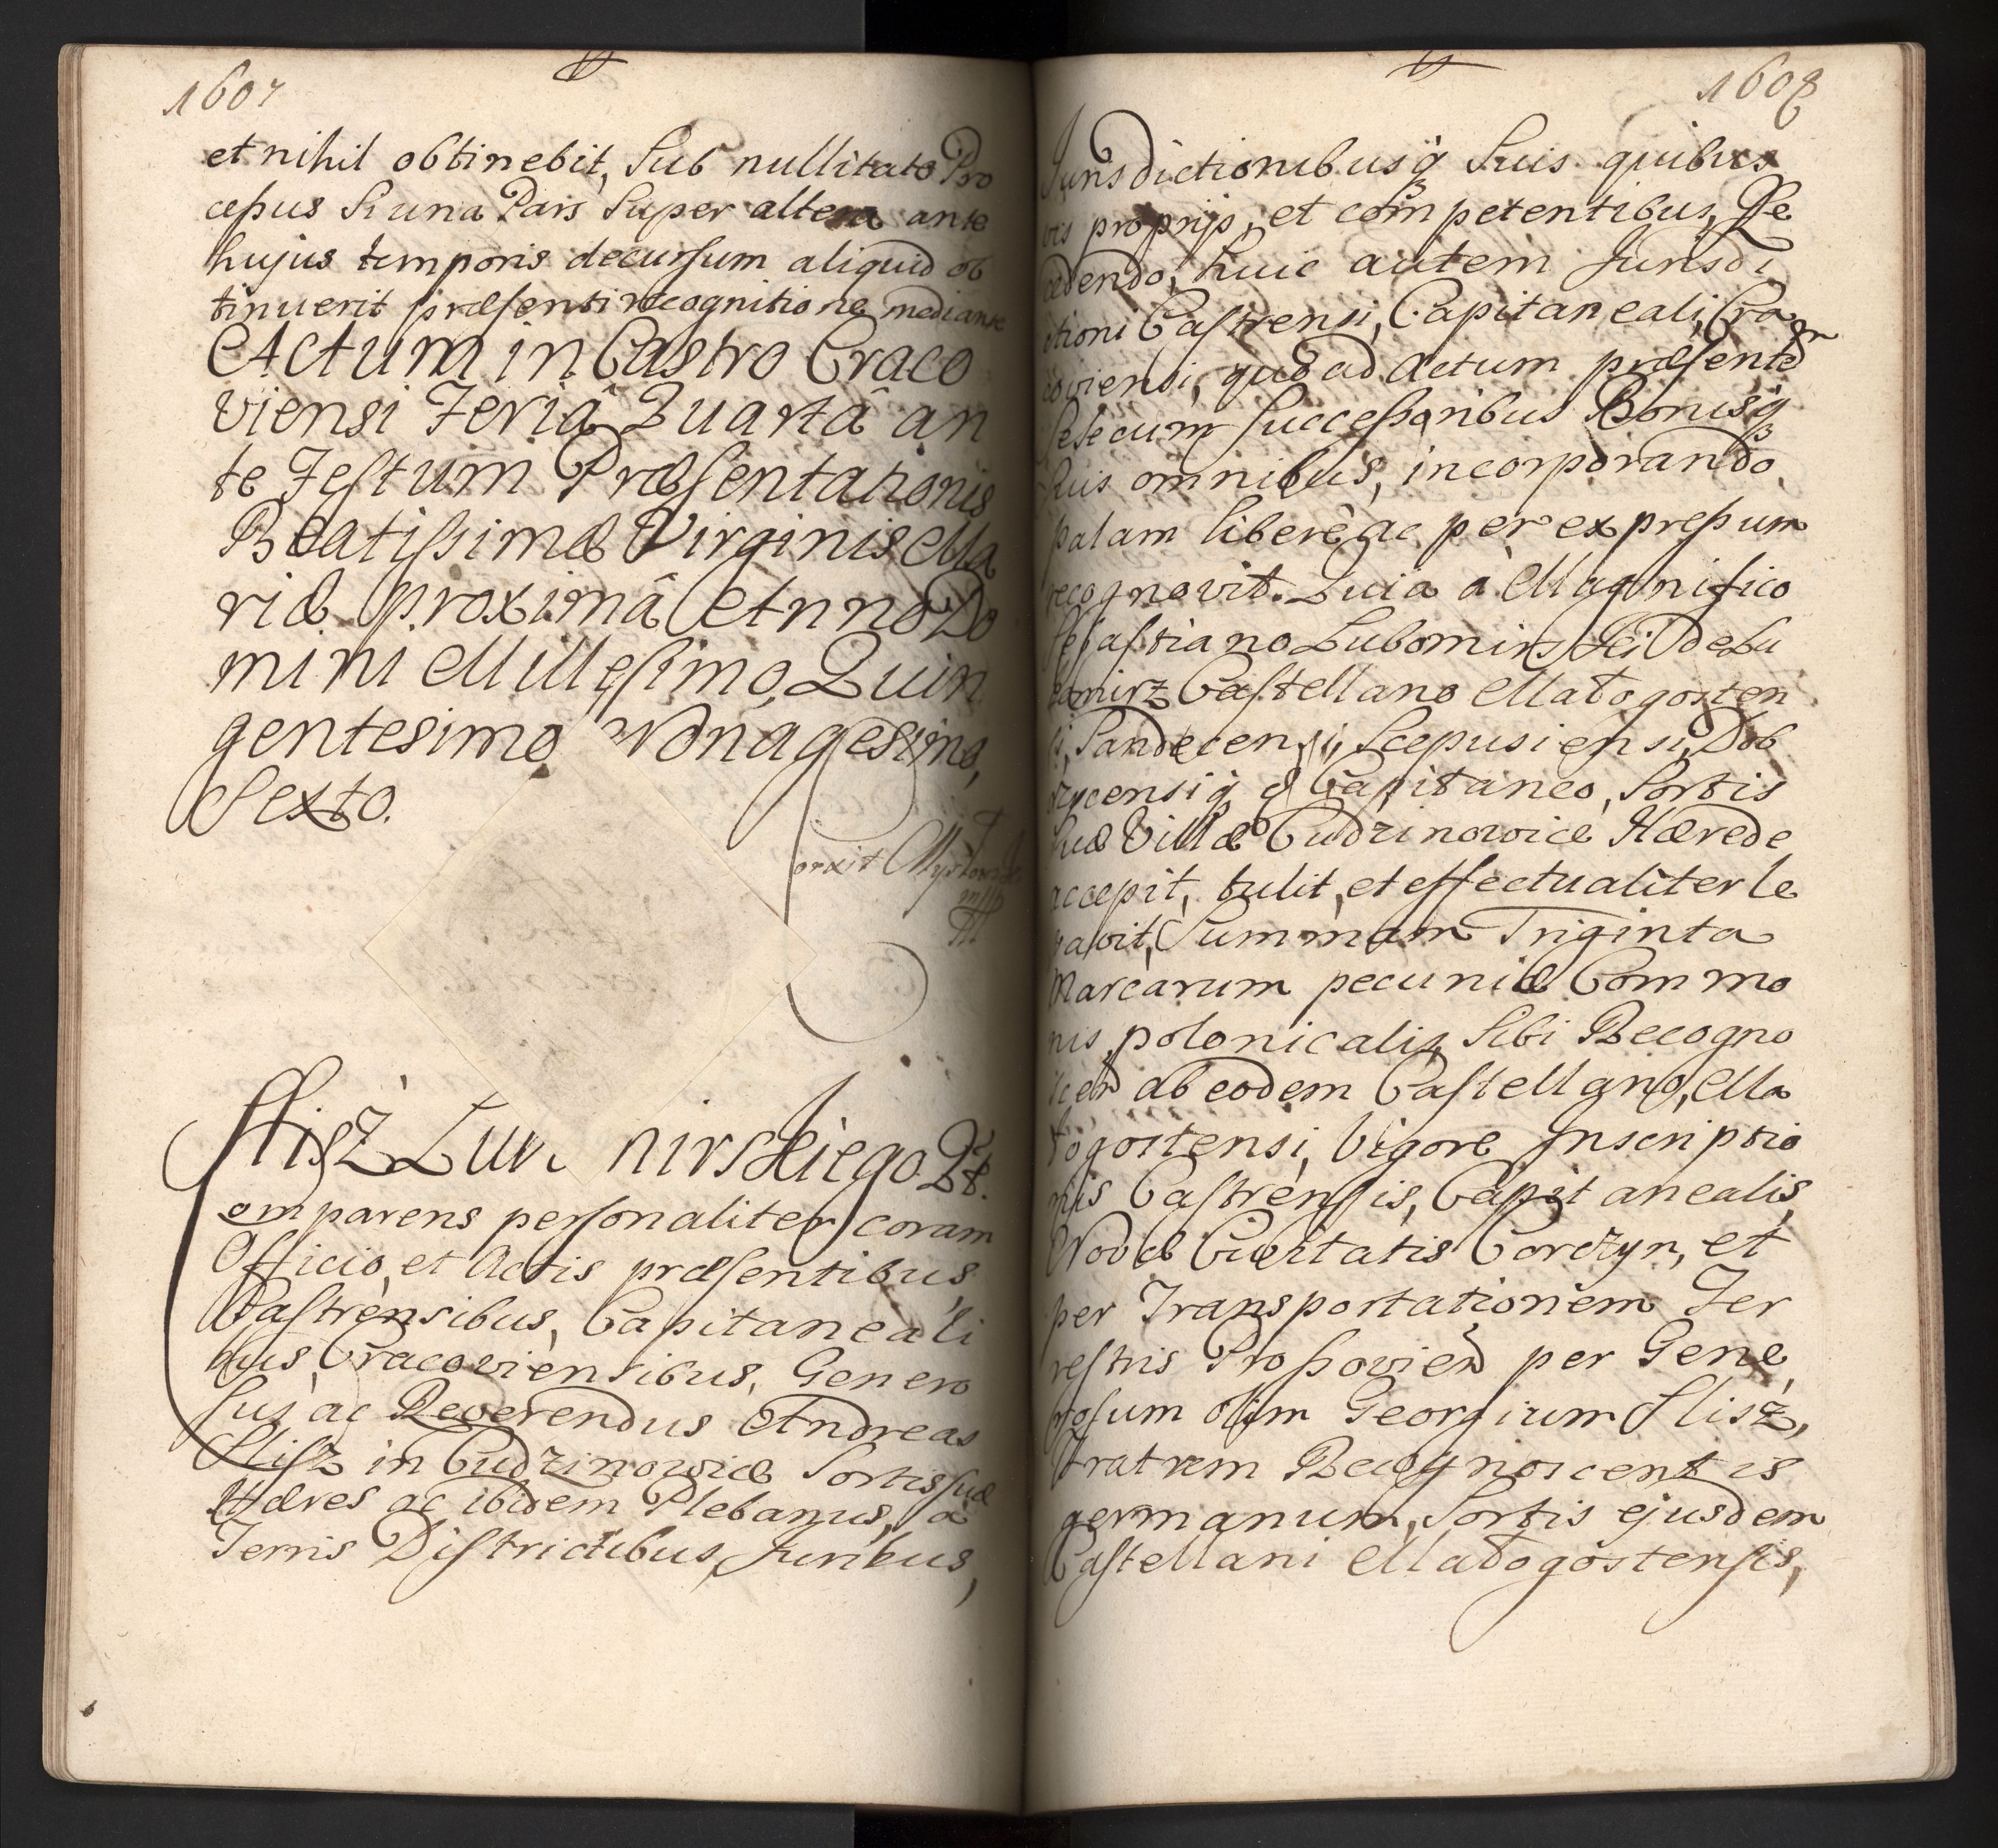 1607
et nihil obtinebit, Sub nullitate Pro
cessus Si una Pars Super altera ante
hujus temporis decursum aliquid ob
tinuerit præsenti recognitione mediante
Actum in Castro Craco
viensi Feriâ Quartâ an
te Festum Præsentationis
Beatissimæ Virginis Ma
riæ proximâ Anno Do
mini Millesimo, Quin
gentesimo Nonagesimo,
Sexto.
Hisz Lu nirskiego Qt.
omparens personaliter coram
Officio, et Actis præsentibus,
Castrensibus, Capitaneali
bus, Cracoviensibus, Genero
sus ac Reverendus Andreas
Slisz in Cudzinowice Sortis suæ
Hæres ac ibidem Plebanus, à
Terris Districtibus, Juribus,
1608
Jurisdictionibusq3 Suis quibus
vis proprijs, et competentibus, Re
cedendo, huic autem Jurisdi
ctioni Castrensi, Capitaneali, Cra
coviensi, quo ad Actum præsentem
Sese cum Successoribus Bonisq3
Suis omnibus, incorporando,
palam liberè ac per expressum
recognovit. Quia à Magnifico
Sebastiano Lubomirski De Lu
bomirz Castellano Małogosten
si, Sandecensi, Scepusiensi, Dob
czycensiq3 Capitaneo, Sortis
suæ Villæ Cudzinowice Hærede
accepit, tulit, et effectualiter le
vavit, Summam Triginta
Marcarum pecuniæ Commo
nis, polonicalis, Sibi Recogno
scen ab eodem Castellano, Ma
łogostensi, Vigore Inscriptio
nis Castrensis, Capitanealis,
Novæ Civitatis Corczyn, et
per Transportationem Ter
restris Prossovien per Gene,
rosum olim Georgium Slisz,
Fratrem Recognoscentis
germanum, Sortis ejusdem
Castellani Małogostensis,